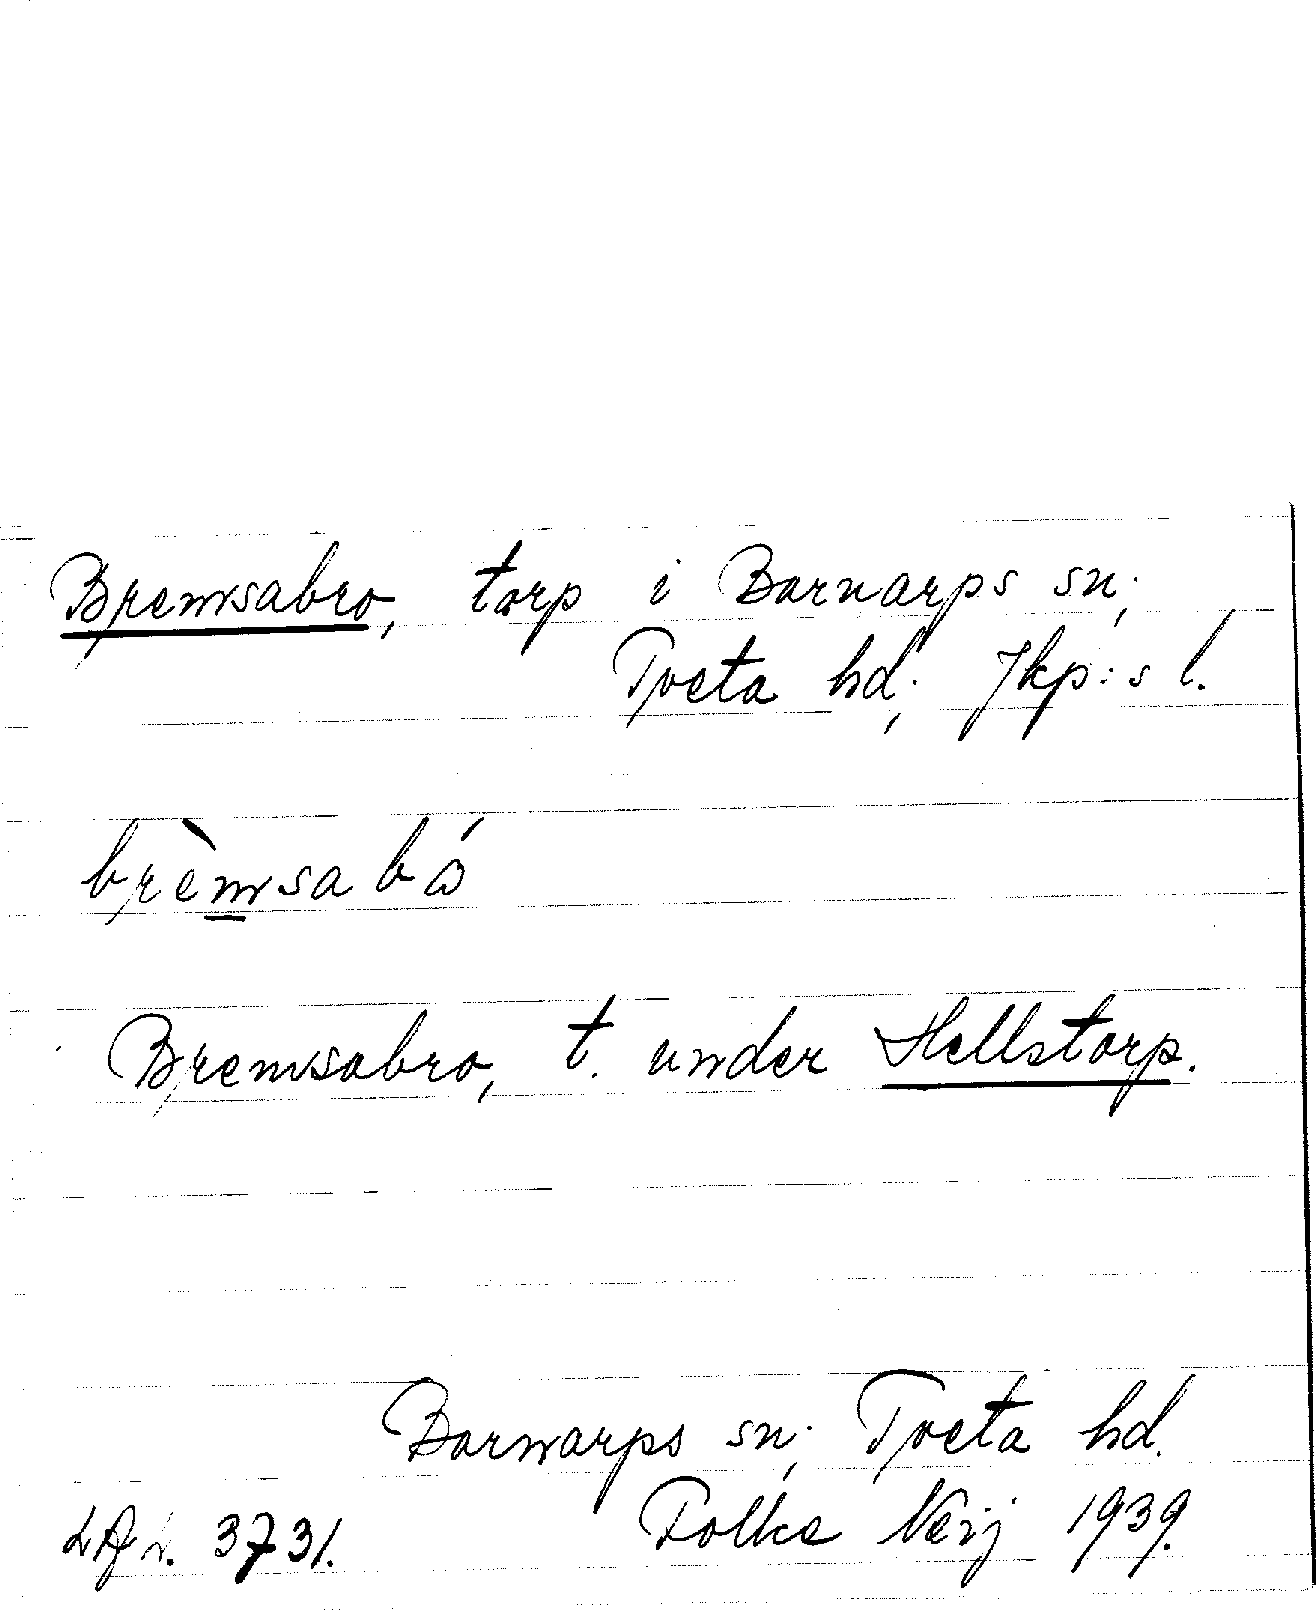 Bremsabro, torp i Barnarps sn;
Tveta hd; Jkp:s l.
brèmsa bó
Bremsabro, t. under Hellstorp.
Barnarps sn; Tveta hd.
3731. Folke Neij 1939.